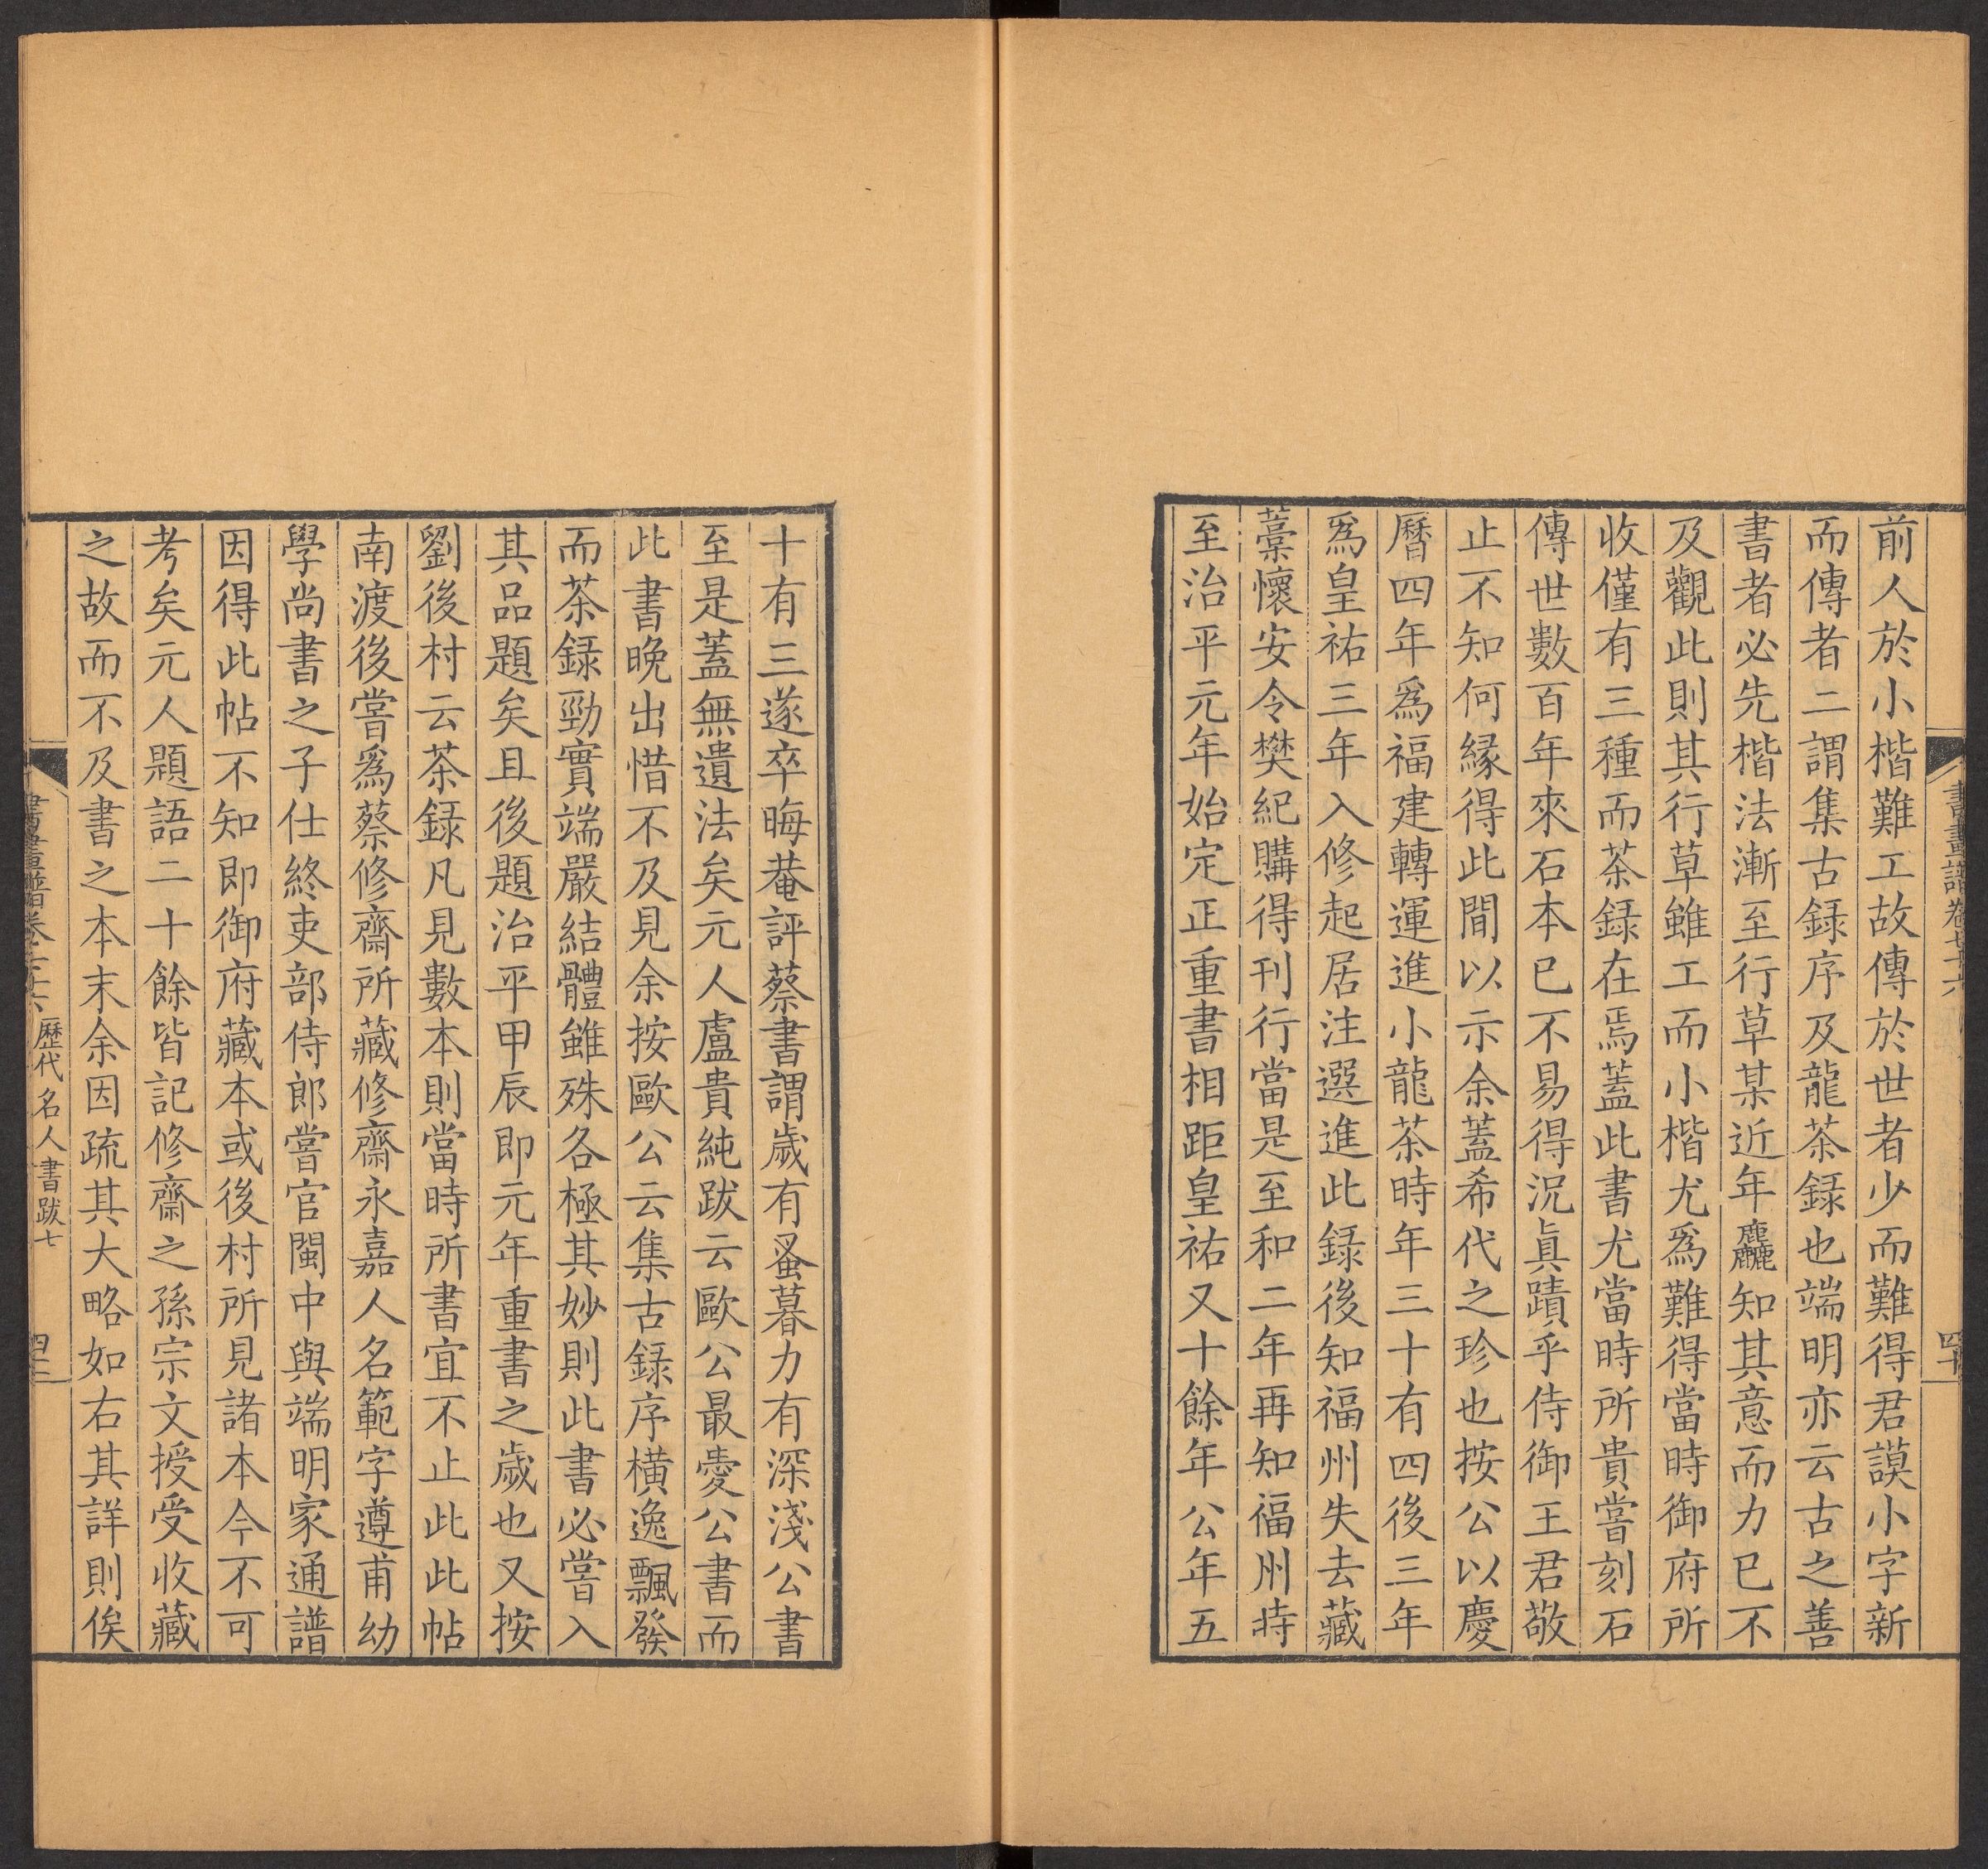 前人於小楷難工故傳於世者少而難得君謨小字新
而傳者二謂集古録序及龍茶録也端明亦云古之善
書者必先楷法漸至行草某近年麤知其意而力已不
及觀此則其行草雖工而小楷尤爲難得當時御府所
收僅有三種而茶録在焉蓋此書尤當時所貴嘗刻石
傳世數百年來石本已不易得況眞蹟乎侍御王君敬
止不知何縁得此間以示余蓋希代之珍也按公以慶
曆四年爲福建轉運進小龍茶時年三十有四後三年
爲皇祐三年入修起居注選進此録後知福州失去藏
藁懷安令樊紀購得刊行當是至和二年再知福州時
至治平元年始定正重書相距皇祐又十餘年公年五
書畫譜卷七十六
四十
十有三遂卒晦菴評蔡書謂歲有蚤暮力有深淺公書
至是蓋無遺法矣元人盧貴純跋云歐公最愛公書而
此書晚出惜不及見余按歐公云集古録序横逸飄發
而茶録勁實端嚴結體雖殊各極其妙則此書必嘗入
其品題矣且後題治平甲辰即元年重書之歲也又按
劉後村云茶録凡見數本則當時所書宜不止此此帖
南渡後嘗爲蔡修齋所藏修齋永嘉人名範字遵甫幼
學尚書之子仕終吏部侍郎嘗官閩中與端明家通譜
因得此帖不知即御府藏本或後村所見諸本今不可
考矣元人題語二十餘皆記修齋之孫宗文授受收藏
之故而不及書之本末余因疏其大略如右其詳則俟
書畫譜卷七十六 歷代名人書跋七